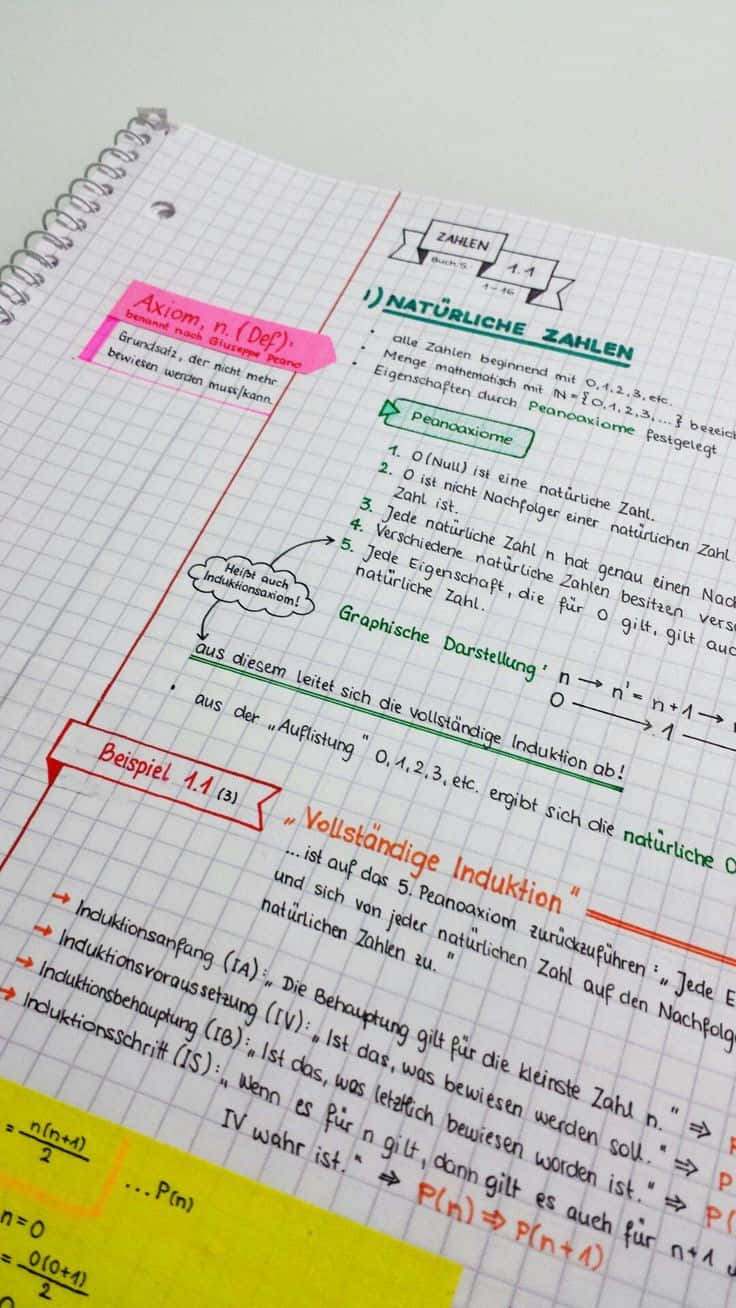 ZAHLEN
Buch S.
1.1
1-16
1) NATÜRLICHE ZAHLEN
• alle Zahlen beginnend mit 0,1,2,3, etc.
• Menge mathematisch mit ℕ = {0,1,2,3,...}
• Eigenschaften durch Peanoaxiome festgelegt
Axiom, n. (Def):
benannt nach Giuseppe Peano
Grundsatz, der nicht mehr
bewiesen werden muss/kann.
Peanoaxiome
1. 0 (Null) ist eine natürliche Zahl.
2. 0 ist nicht Nachfolger einer natürlichen Zahl
Zahl ist.
3. Jede natürliche Zahl n hat genau einen
4. Verschiedene natürliche Zahlen besitzen
5. Jede Eigenschaft, die für 0 gilt, gilt
natürliche Zahl.
Heißt auch
Induktionsaxiom!
Graphische Darstellung: n → n' = n+1 →
0 → 1
aus diesem leitet sich die vollständige Induktion ab!
• aus der „Auflistung" 0,1,2,3, etc. ergibt sich die natürliche
Beispiel 1.1 (3)
„Vollständige Induktion"
... ist auf das 5. Peanoaxiom zurückzuführen: „Jede
und sich von jeder natürlichen Zahl auf den
natürlichen Zahlen zu."
→ Induktionsanfang (IA): „Die Behauptung gilt für die kleinste Zahl n." ⇒
→ Induktionsvoraussetzung (IV): „Ist das, was bewiesen werden soll." ⇒ P
→ Induktionsbehauptung (IB): „Ist das, was letztlich bewiesen worden ist." ⇒ P(
→ Induktionsschritt (IS): „Wenn es für n gilt, dann gilt es auch für n+1
IV wahr ist." ⇒ P(n) ⇒ P(n+1)
= n(n+1)/2 ...P(n)
n=0
= 0(0+1)/2